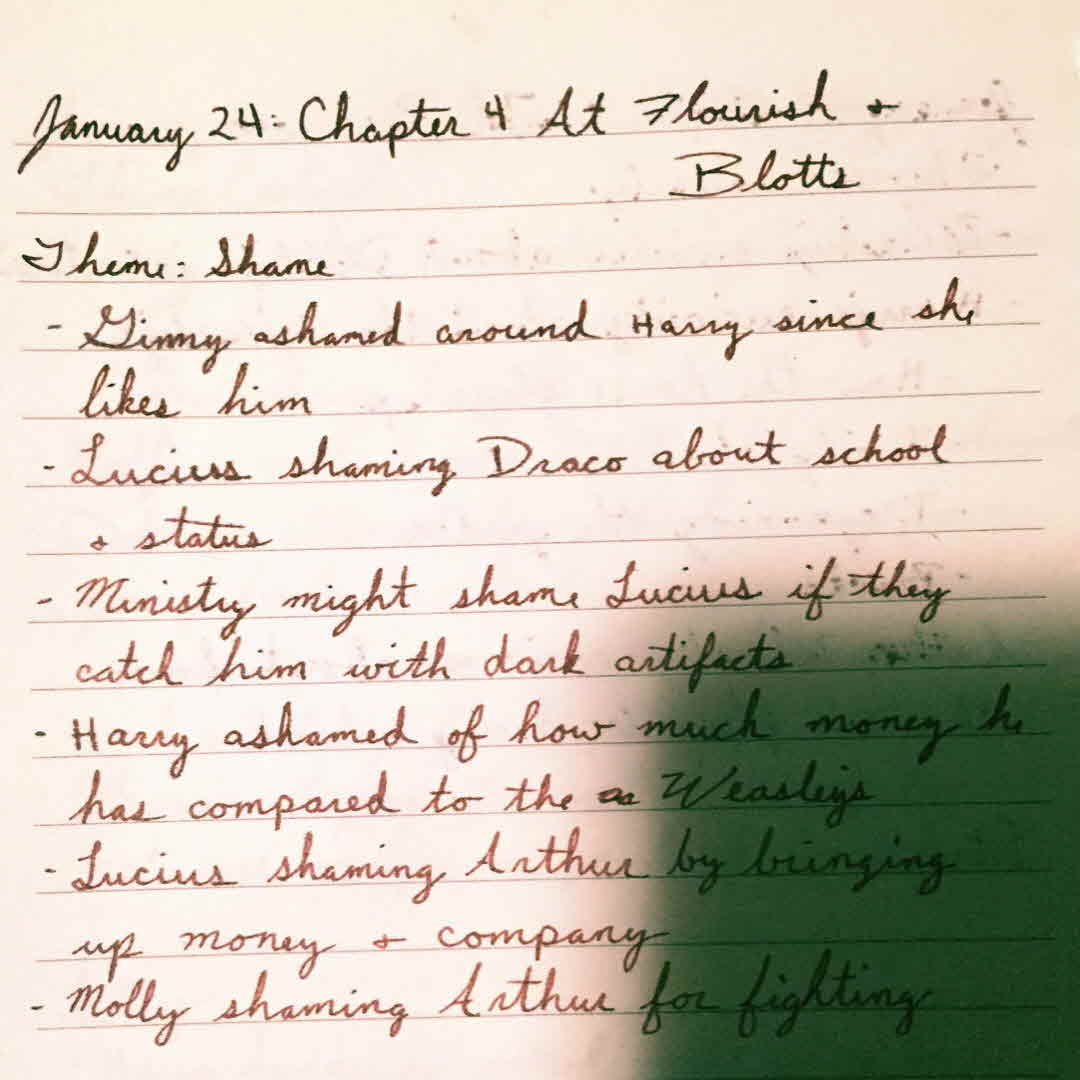 January 24: Chapter 4 At Flourish &
Blotts
Theme: Shame
- Ginny ashamed around Harry since she
likes him
- Lucius shaming Draco about school
& status
- Ministry might shame Lucius if they
catch him with dark artifacts
- Harry ashamed of how much money he
has compared to the Weasleys
- Lucius shaming Arthur by bringing
up money & company
- Molly shaming Arthur for fighting